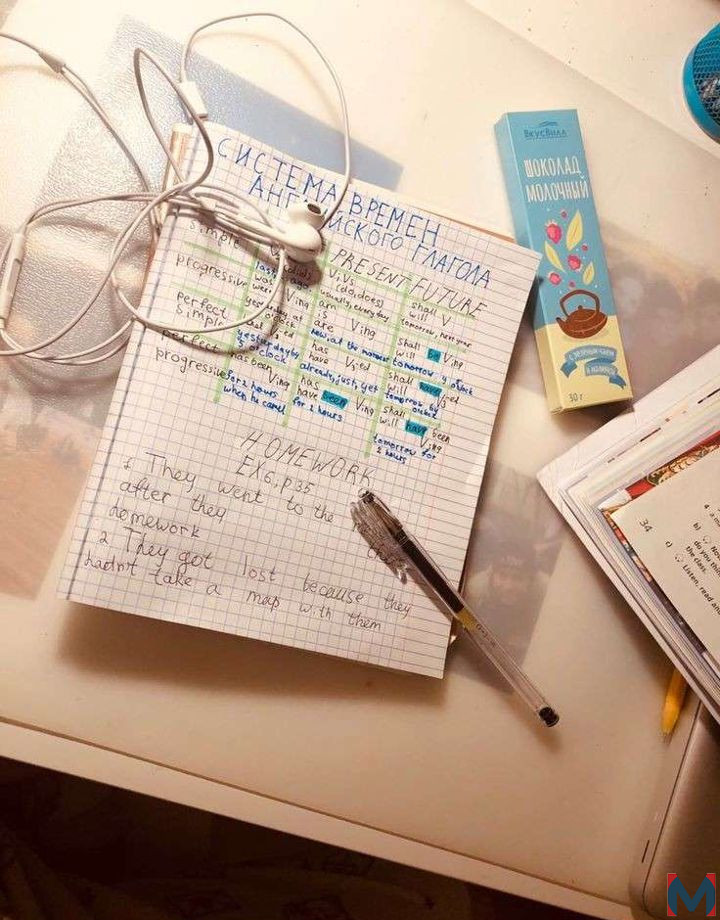 СИСТЕМА ВРЕМЕН
АНГЛИЙСКОГО ГЛАГОЛА
PRESENT FUTURE
simple
V, Vs
(do, does)
usually, every day
shall
will V
tomorrow, next year
progressive
was
were Ving
am
is
are Ving
now, at the moment
shall
will be Ving
tomorrow 9 o'clock
perfect
simple
has
have V3-ed
already, just, yet
shall
will have V3-ed
tomorrow by
yesterday by
3 o'clock
perfect
progressive
has been Ving
for 2 hours
when he came
has
have been Ving
for 2 hours
shall
will have been
Ving
tomorrow for
2 hours
HOMEWORK
EX6, p35
1 They went to the
after they
homework
2 They got lost because they
hadn't take a map with them
ВКУСВИЛЛ
ШОКОЛАД
МОЛОЧНЫЙ
С ЗЕЛЕНЫМ ЧАЕМ
И МАЛИНОЙ
30 г
34
4
b)
do you thin
the class.
c) Listen, read and
M